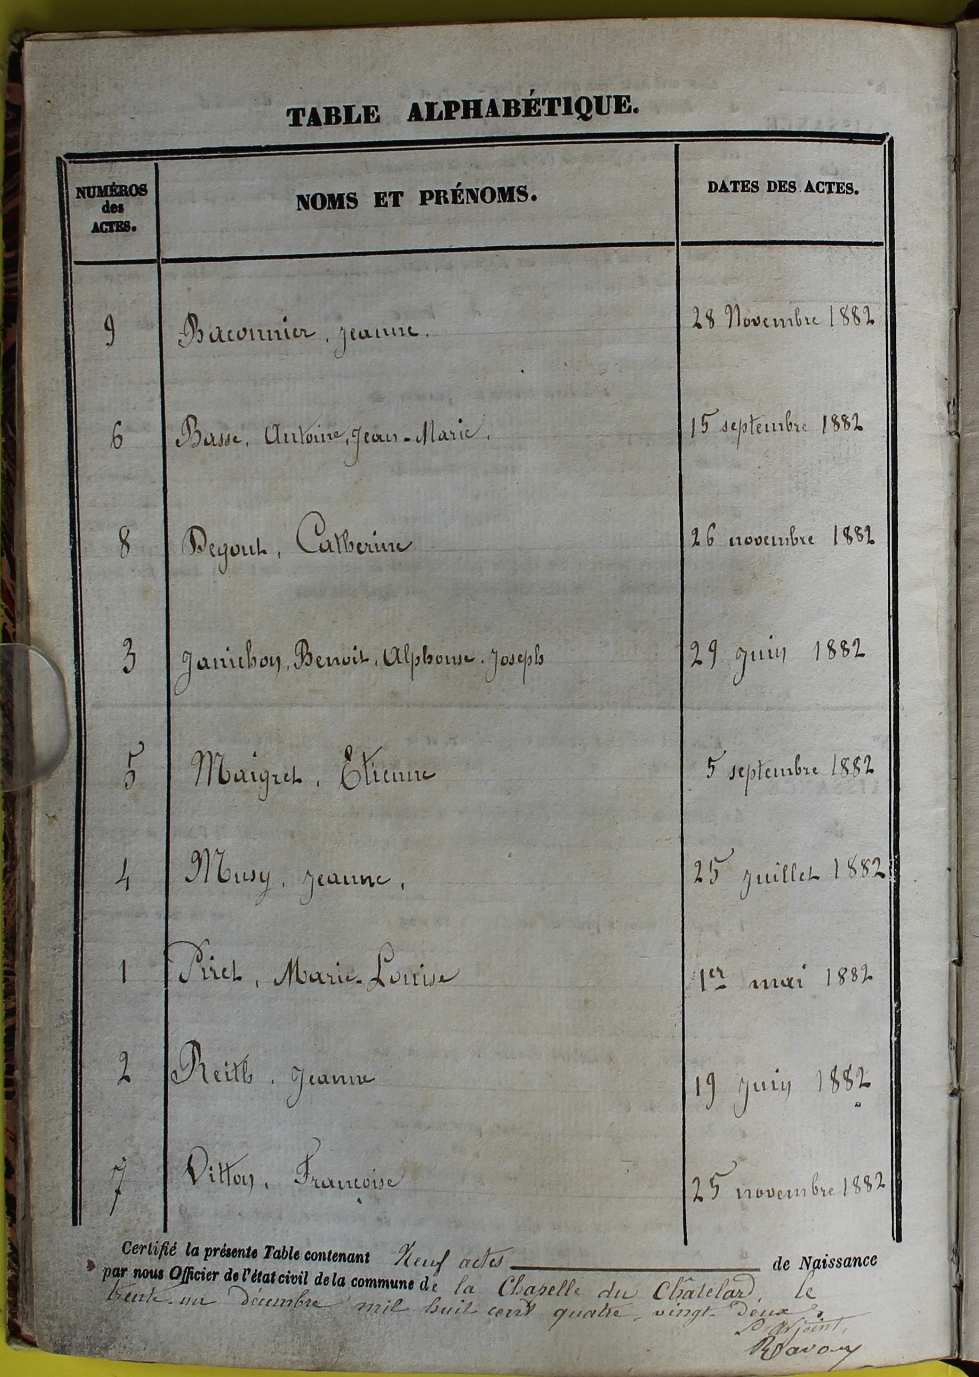 TABLE ALPHABÉTIQUE.
NUMÉROS des ACTES. NOMS ET PRÉNOMS. DATES DES ACTES.
9 Baconnier, Jeanne. 28 Novembre 1882
6 Basse, Antoine, Jean-Marie. 15 septembre 1882
8 Degout, Catherine 26 novembre 1882
3 Janichon, Benoit, Alphonse, Joseph 29 juin 1882
5 Maigret, Etienne 5 septembre 1882
4 Musy, Jeanne, 25 juillet 1882
1 Piret, Marie-Louise 1er mai 1882
2 Reith, Jeanne 19 juin 1882
7 Vitton, Françoise 25 novembre 1882
Certifié la présente Table contenant Neuf actes de Naissance
par nous Officier de l'état civil de la commune de la Chapelle du Châtelard, le
trente-un décembre mil huit cent quatre-vingt-deux.
L'adjoint,